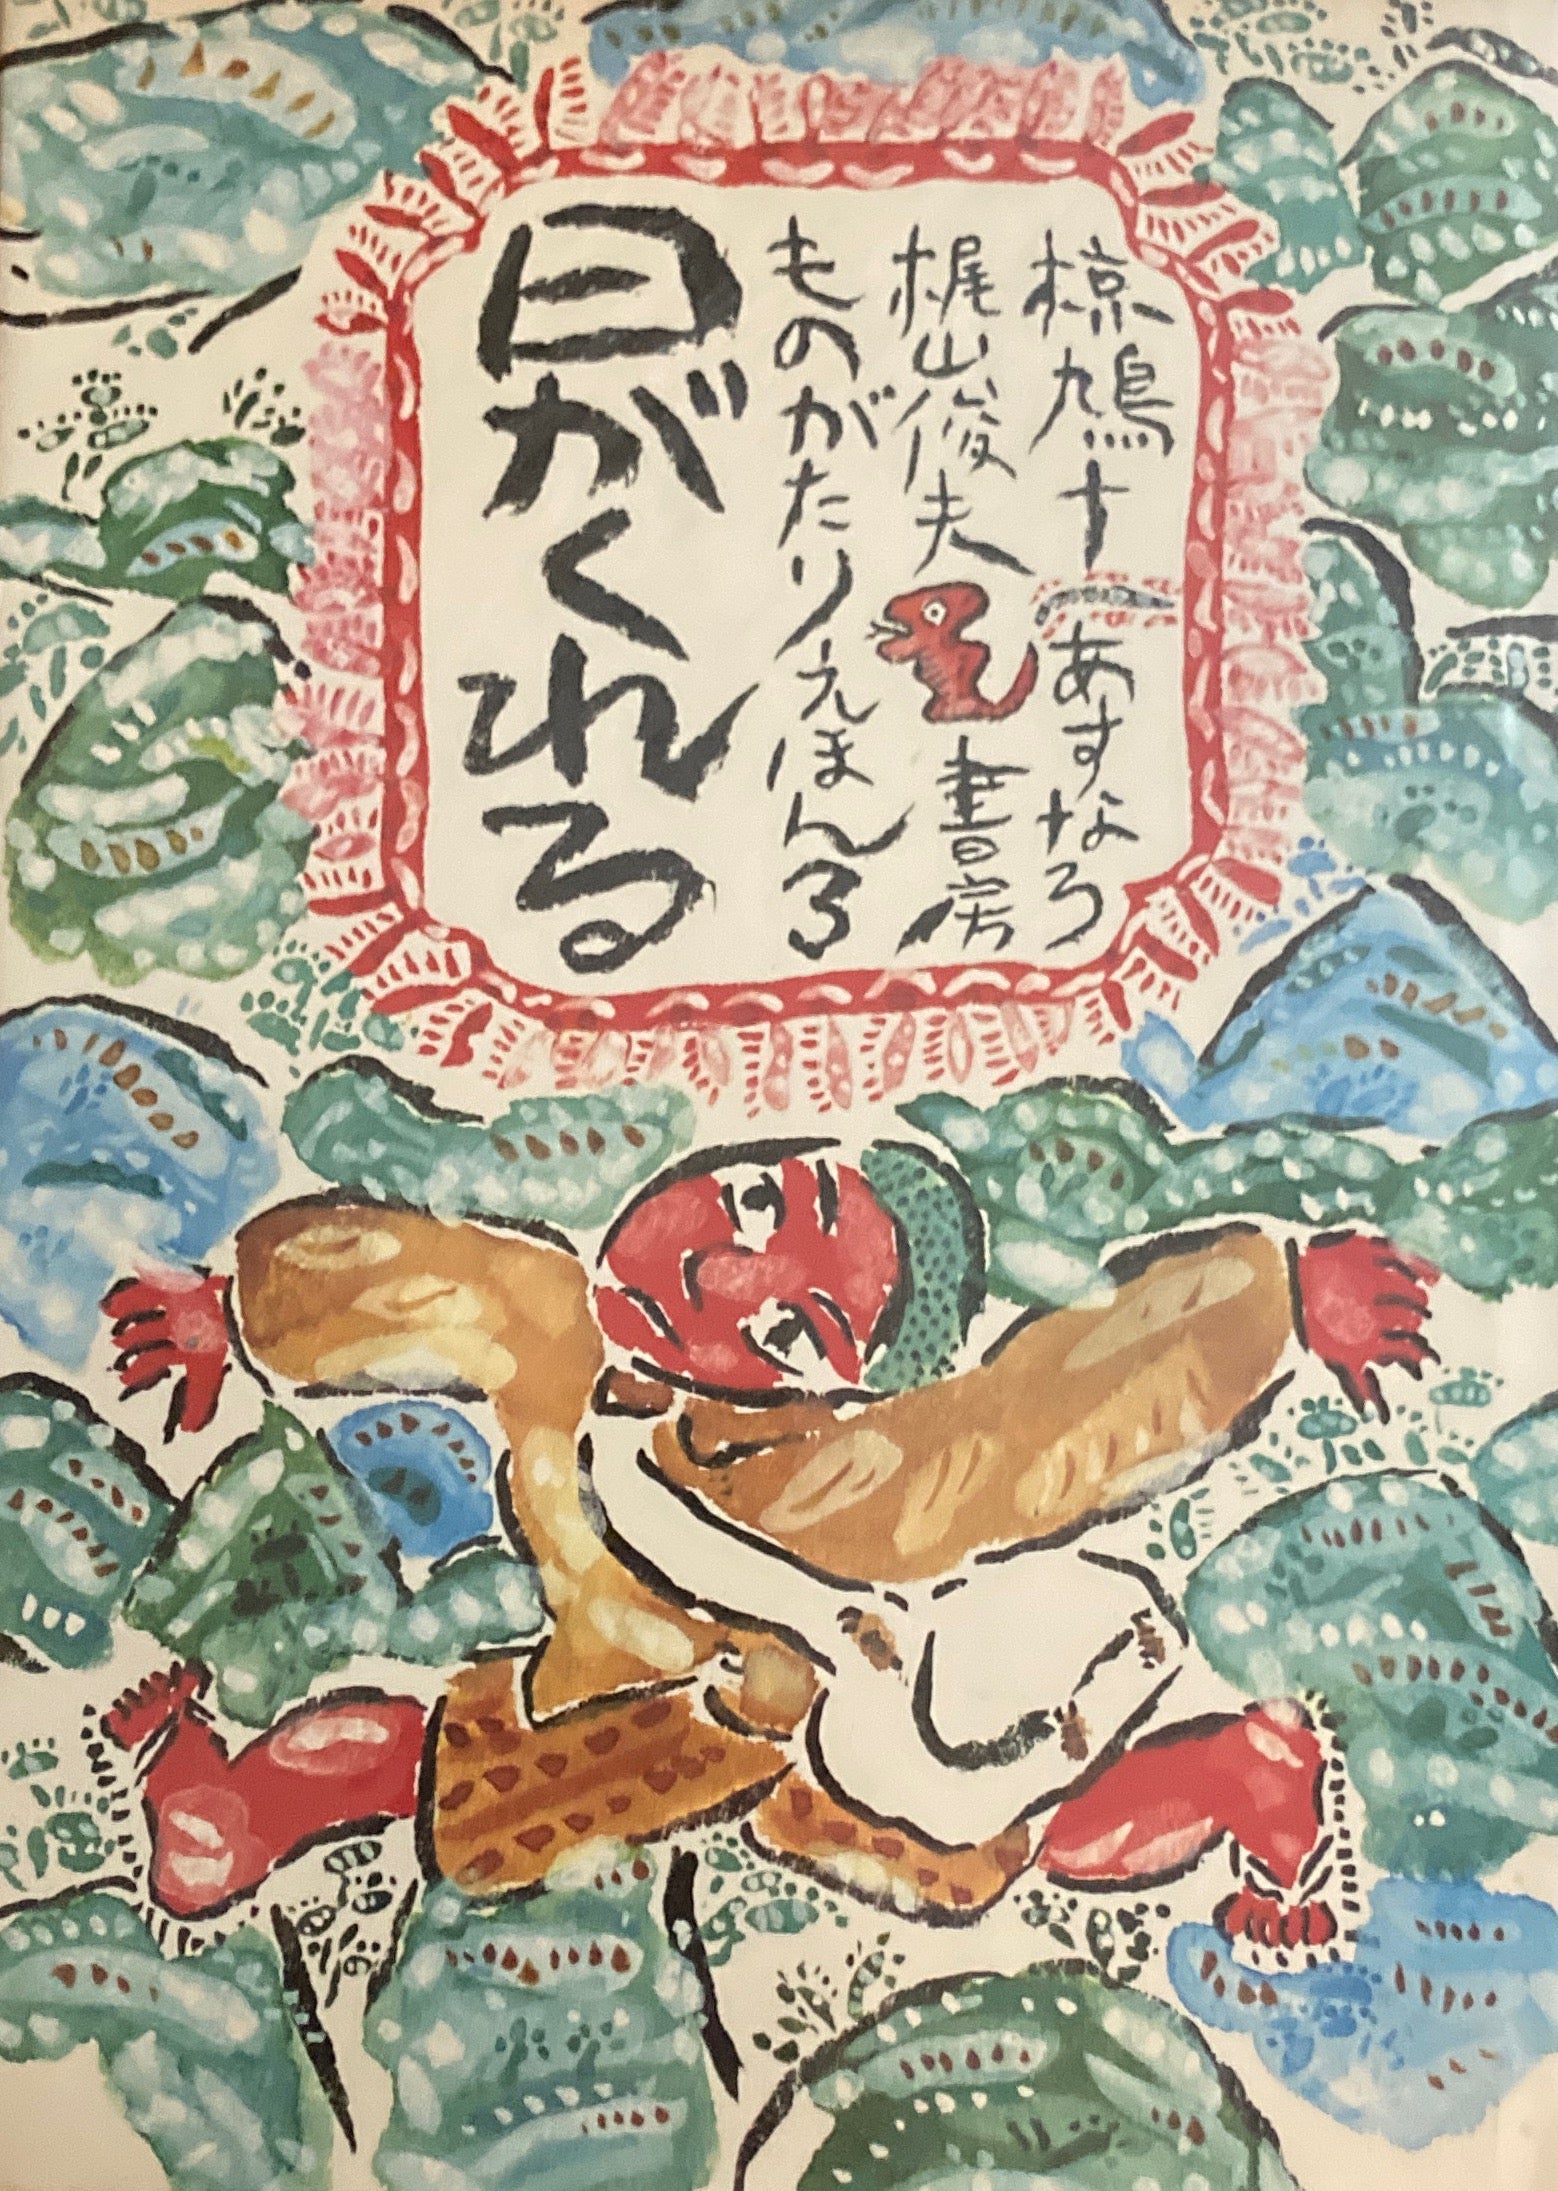 椋鳩十
あすなろ
梶山俊夫
書房
ものがたりえほん3
日がくれる